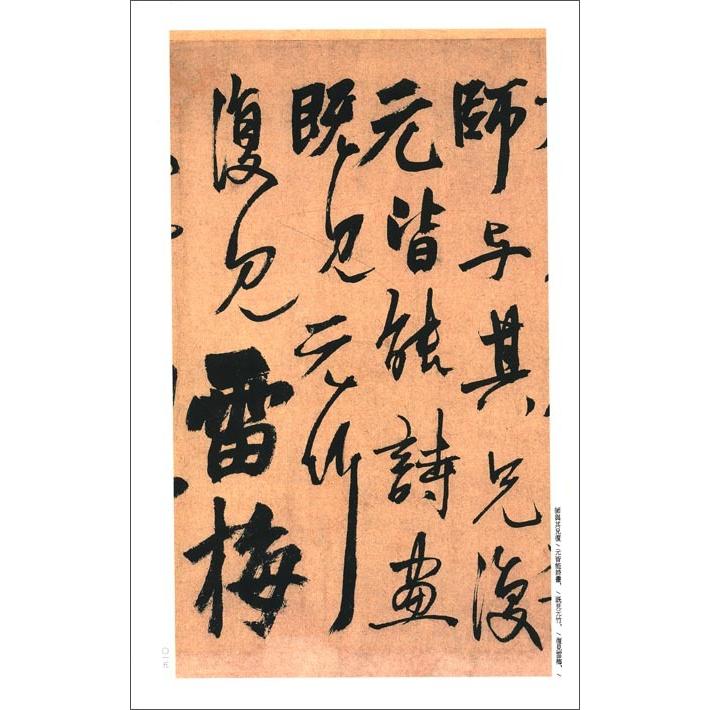 師与其兄復
元皆能詩畫
既見元竹
復見雷梅
師與其兄復/元皆能詩畫,/既見元竹,/復見雷梅,/
〇一五